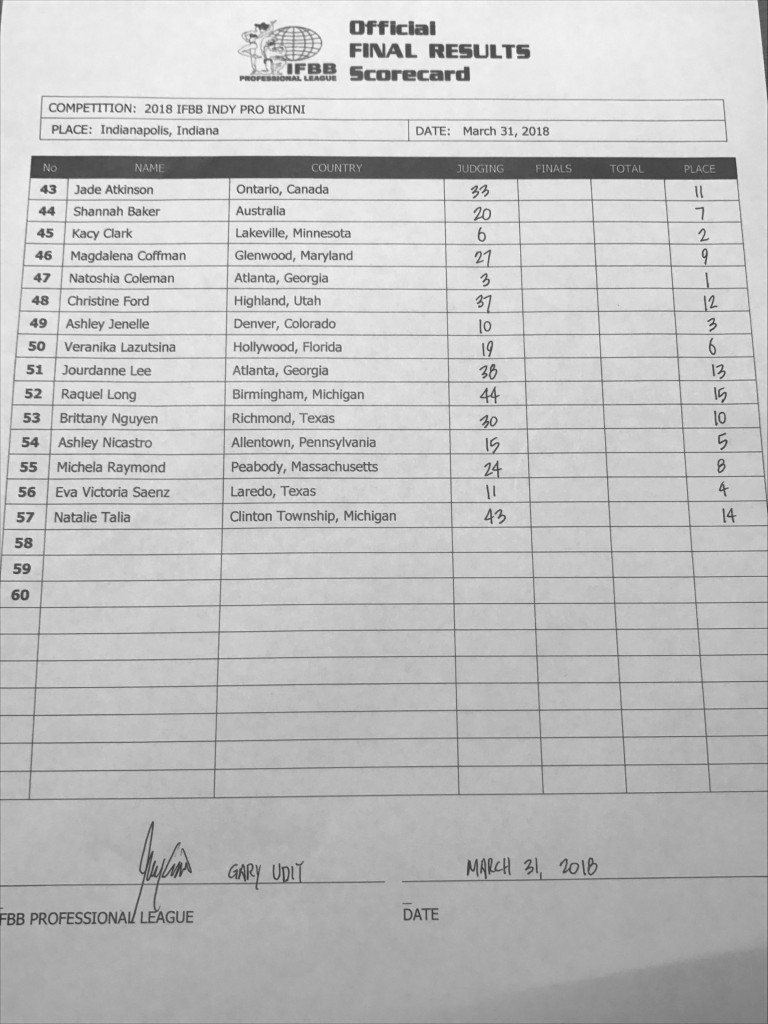 Official
FINAL RESULTS
Scorecard
IFBB
PROFESSIONAL LEAGUE
COMPETITION: 2018 IFBB INDY PRO BIKINI
PLACE: Indianapolis, Indiana DATE: March 31, 2018
No NAME COUNTRY JUDGING FINALS TOTAL PLACE
43 Jade Atkinson Ontario, Canada 33 11
44 Shannah Baker Australia 20 7
45 Kacy Clark Lakeville, Minnesota 6 2
46 Magdalena Coffman Glenwood, Maryland 27 9
47 Natoshia Coleman Atlanta, Georgia 3 1
48 Christine Ford Highland, Utah 37 12
49 Ashley Jenelle Denver, Colorado 10 3
50 Veranika Lazutsina Hollywood, Florida 19 6
51 Jourdanne Lee Atlanta, Georgia 38 13
52 Raquel Long Birmingham, Michigan 44 15
53 Brittany Nguyen Richmond, Texas 30 10
54 Ashley Nicastro Allentown, Pennsylvania 15 5
55 Michela Raymond Peabody, Massachusetts 24 8
56 Eva Victoria Saenz Laredo, Texas 11 4
57 Natalie Talia Clinton Township, Michigan 43 14
58
59
60
GARY UDIT MARCH 31, 2018
FBB PROFESSIONAL LEAGUE DATE